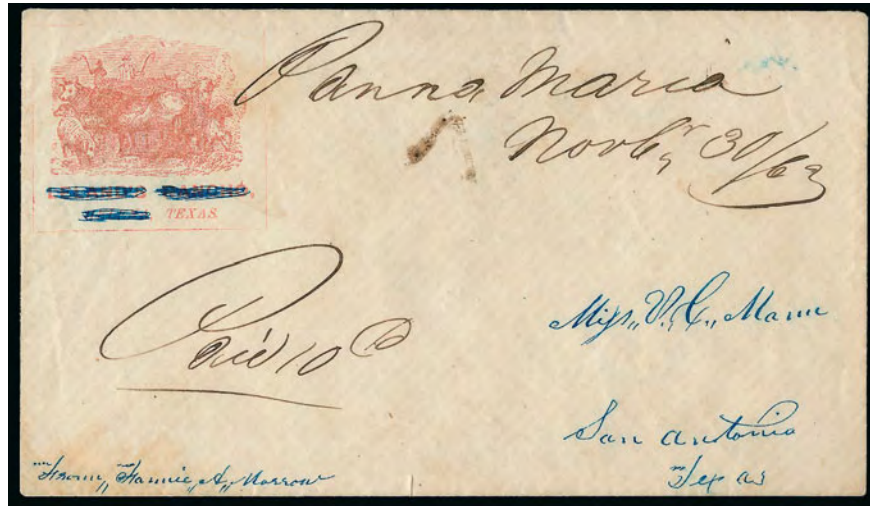 TEXAS.
Panna Maria
Novbr 30/62
Paid 10
Miss,, V. C,, Mann
San Antonio
Texas
From,, Fannie,, A,, Morrow